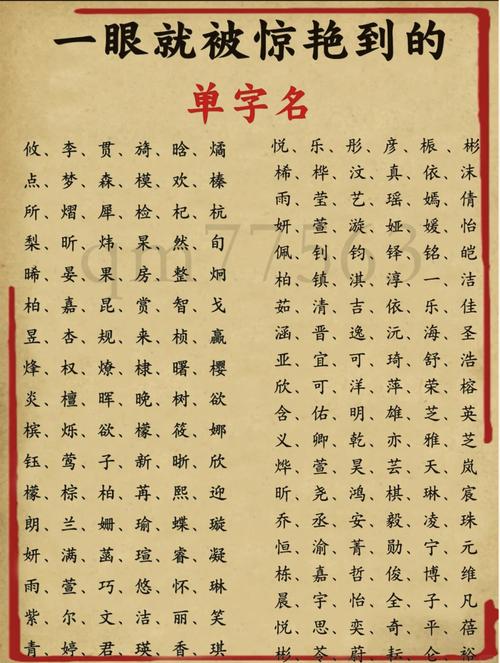 一眼就被惊艳到的
单字名
攸、李、贯、旖、晗、燏
点、梦、森、模、欢、榛
所、熠、犀、检、杞、杭
梨、昕、炜、果、然、旬
晞、晏、果、房、整、炯
柏、嘉、昆、赏、智、戈
昱、杏、规、来、桢、赢
烽、权、燎、棣、曙、樱
炎、檀、晖、晚、树、欲
槟、烁、欲、檬、筱、娜
钰、莺、子、新、晰、欣
檬、棕、柏、苒、熙、迎
朗、兰、姗、瑜、蝶、璇
妍、满、菡、瑄、睿、凝
雨、萱、巧、悠、怀、琳
紫、尔、文、洁、丽、笑
青、婷、君、瑛、香、琪
悦、乐、彤、彦、桭、彬
桸、桦、汶、真、依、沫
雨、莹、艺、瑶、嫣、倩
妍、萱、漩、娅、媛、怡
佩、钊、钧、铎、铭、皑
柏、镇、淇、淳、一、洁
茹、清、吉、依、乐、佳
涵、晋、逸、沅、海、圣
亚、宜、可、琦、舒、浩
欣、可、洋、萍、荣、榕
含、佑、明、雄、芝、英
义、卿、乾、亦、雅、芝
烨、萱、昊、芸、天、岚
昕、尧、鸿、棋、琳、宸
乔、丞、安、毅、凌、珠
恒、渝、菁、勋、宁、元
栋、嘉、哲、俊、博、维
晨、宇、怡、全、子、凡
悦、思、奕、奇、平、蓓
彬、苓、蔚、耘、仑、裕
qm77563